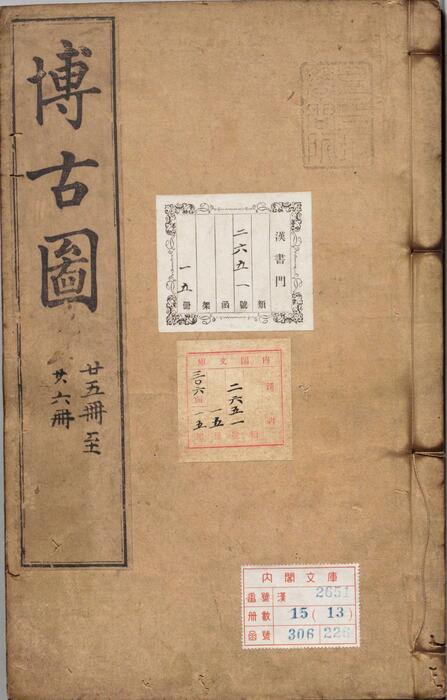 博古圖
廿五冊至
廿六冊
漢書門
類
二六五一號
函
架
一五冊
內閣文庫
漢書
二六五一
一五
三〇六函
一五
內閣文庫
番號 漢 2651
冊數 15(13)
函號 306 226